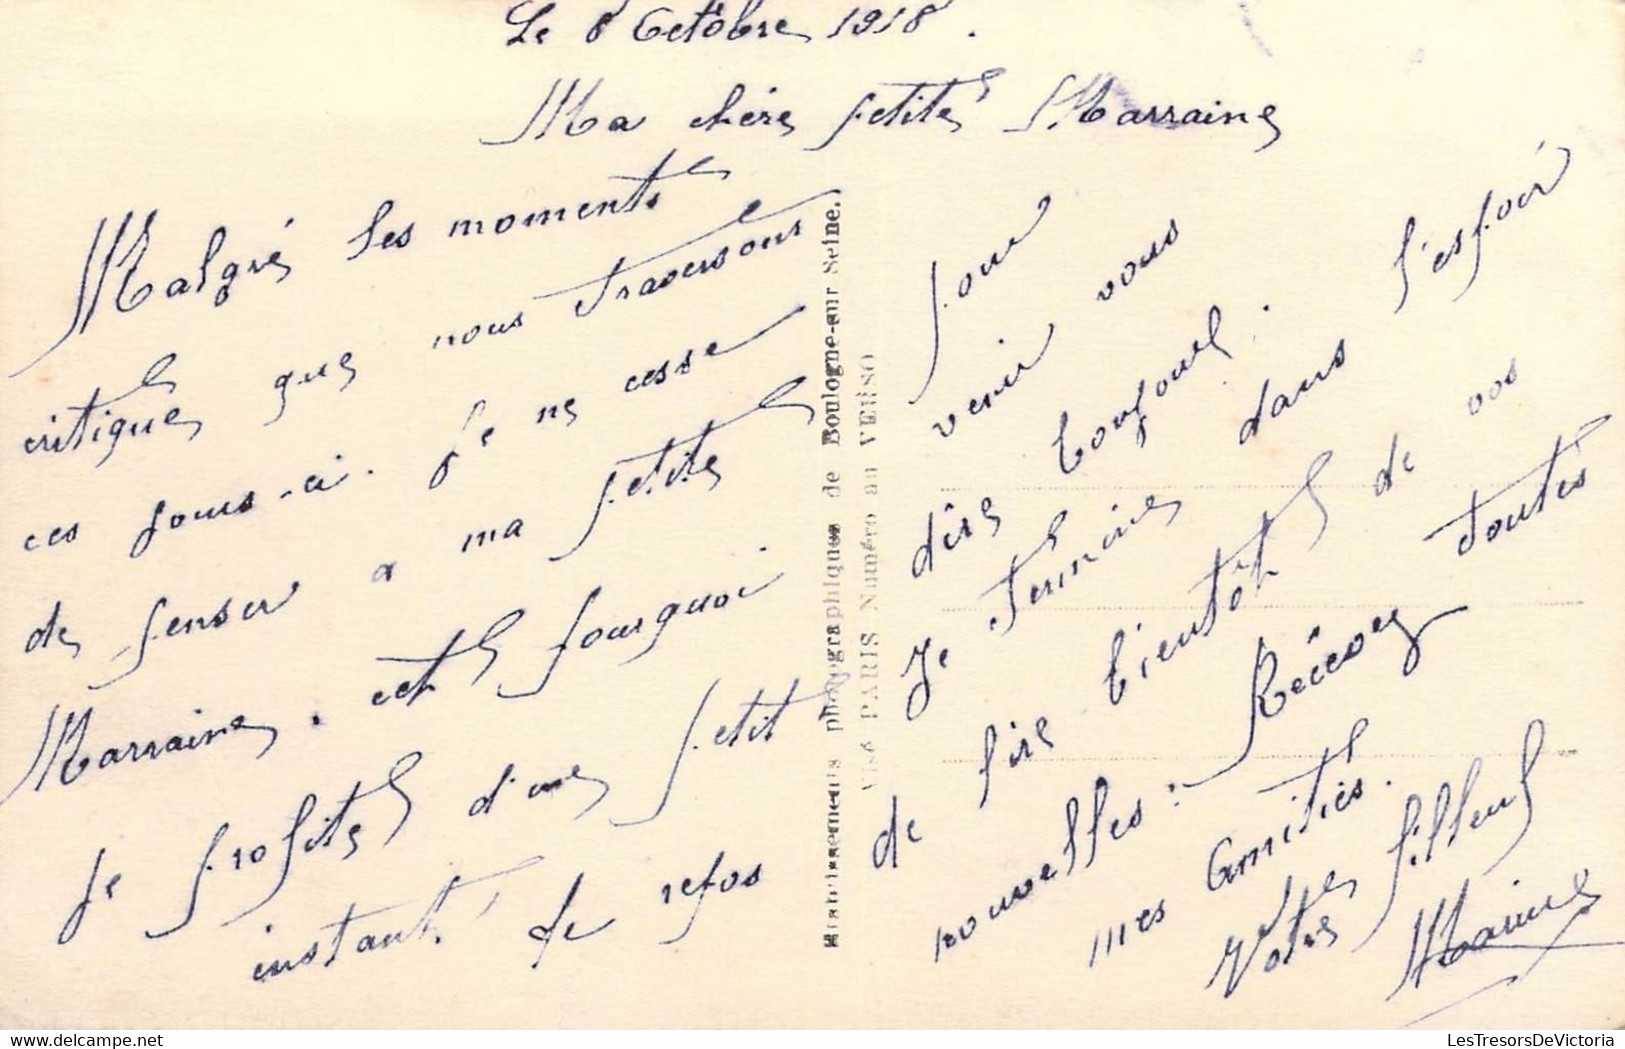 Le 8 Octobre 1918.
Ma chère petite Marraine
Malgré les moments
critiques que nous traversons
ces jours-ci. Je ne cesse
de penser a ma petite
Marraine. et pourquoi
Je profite d'un petit
instant de repos
pour
venir vous
dire bonjour.
Je termine dans l'espoir
de lire bientôt de vos
nouvelles. Recevez toutes
mes amitiés.
Votre filleul
Etablissements photographiques de Boulogne-sur-Seine.
Visé PARIS Numéro au VERSO
LesTresorsDeVictoria
www.delcampe.net